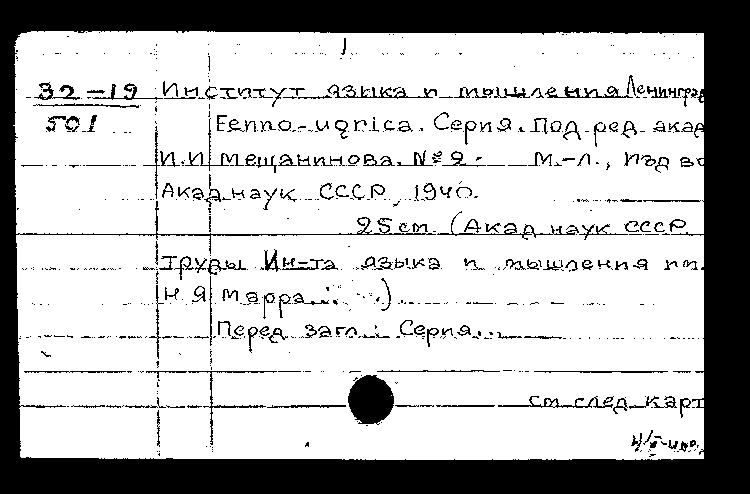 32-19 Институт языка и мышления Ленинград
501 Fenno-ugrica. Серия. Под ред. акад
И.И Мещанинова. №2. М.-Л., Изд во
Акад наук СССР, 1940.
25 см. (Акад наук СССР.
Труды Ин-та языка и мышления им.
Н Я Марра...)
Перед загл.: Серия...
см след карт